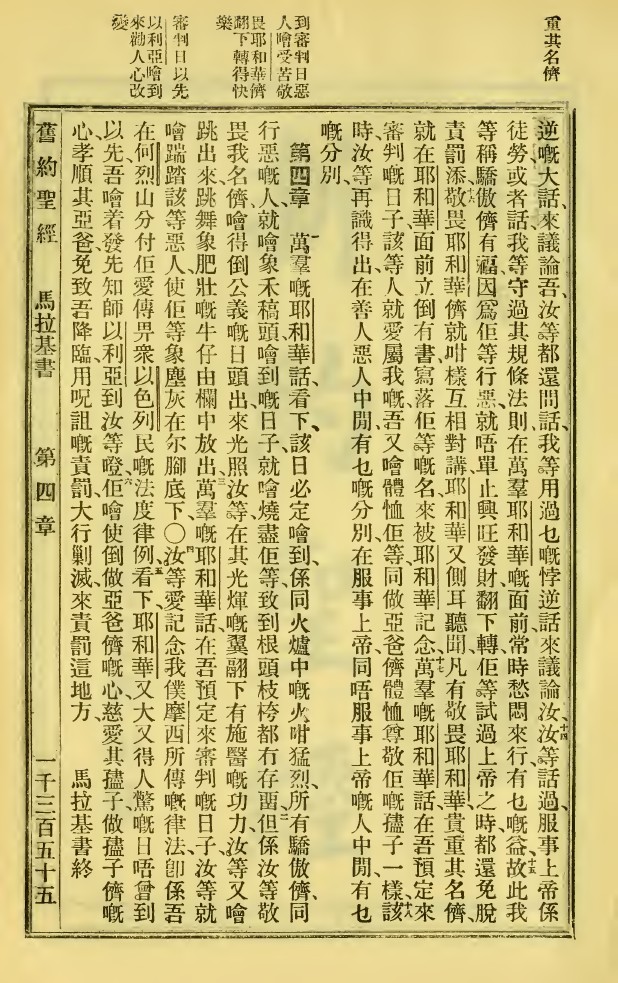 重其名儕
到審判日惡
人噲受苦敬
畏耶和華儕
翻下轉得快
樂
審判日以先
以利亞噲到
來勸人心改
變
逆嘅大話、來議論吾、汝等都還問話、我等用過乜嘅悖逆話來議論汝、十四汝等話過、服事上帝係
徒勞、或者話、我等守過其規條法則、在萬羣耶和華嘅面前、常時愁悶來行、有乜嘅益、十五故此我
等稱驕傲儕有福、因爲佢等行惡、就唔單止興旺發財、翻下轉、佢等試過上帝之時、都還免脫
責罰添、十六敬畏耶和華儕、就咁樣互相對講、耶和華又側耳聽聞、凡有敬畏耶和華、貴重其名儕、
就在耶和華面前立倒有書、寫落佢等嘅名、來被耶和華記念、十七萬羣嘅耶和華話、在吾預定來
審判嘅日子、該等人就愛屬我嘅、吾又噲體恤佢等、同做亞爸儕體恤尊敬佢嘅孻子一樣、十八該
時汝等再識得出、在善人惡人中間、有乜嘅分別、在服事上帝、同唔服事上帝嘅人中間、有乜
嘅分別、
第四章 一萬羣嘅耶和華話、看下、該日必定噲到、係同火爐中嘅火咁猛烈、所有驕傲儕、同
行惡嘅人、就噲象禾稿頭、噲到嘅日子、就噲燒盡佢等、致到根頭枝桍都冇存畱、二但係汝等敬
畏我名儕、噲得倒公義嘅日頭出來光照汝等、在其光煇嘅翼翮下有施醫嘅功力、汝等又噲
跳出來、跳舞象肥壯嘅牛仔由欄中放出、三萬羣嘅耶和華話、在吾預定來審判嘅日子、汝等就
噲踹踏該等惡人、使佢等象塵灰在尔腳底下〇四汝等愛記念我僕摩西所傳嘅律法、卽係吾
在何烈山分付佢愛傳畀衆以色列民嘅法度律例、五看下、耶和華又大又得人驚嘅日唔曾到
以先、吾噲着發先知師以利亞到汝等噔、六佢噲使倒做亞爸儕嘅心慈愛其孻子、做孻子儕嘅
心孝順其亞爸、免致吾降臨用呪詛嘅責罰大行剿滅來責罰這地方、 馬拉基書終
舊約聖經 馬拉基書 第四章 一千三百五十五